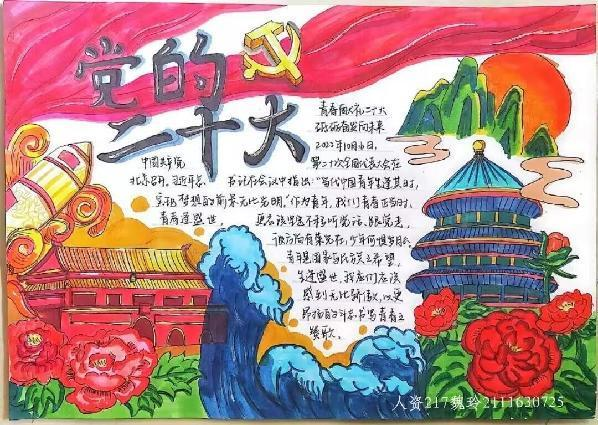 党的
二十大
青春向未来
2022年10月16日,
中国共产党
第二十次全国代表大会在
北京召开,习近平总
书记在会议中指出:"当代中国青年生逢其时,
梦想的前景无比光明。"作为青年,我们青春正当时,
青春逢盛世。
更应该坚定不移听党话、跟党走,
青年是国家与民族之希望,
生逢盛世,我们应该
感到无比骄傲,以更
昂扬的斗志书写青春之
赞歌。
人资217魏玲2111630725